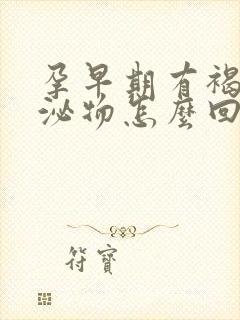 孕早期有褐
泌物怎麼回
符寶